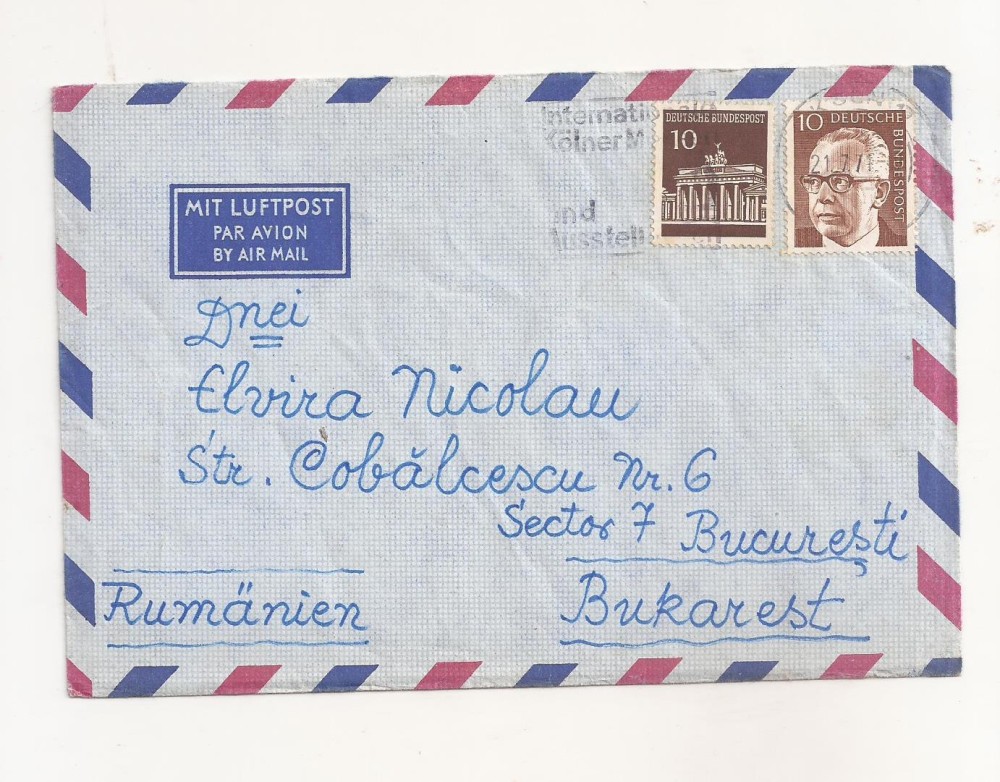 Internati
Kölner M
und
Ausstell
DEUTSCHE BUNDESPOST
10
10 DEUTSCHE
BUNDESPOST
21.7.7
MIT LUFTPOST
PAR AVION
BY AIR MAIL
Dnei
Elvira Nicolau
Str. Cobălcescu Nr. 6
Sector 7 București
Rumänien Bukarest